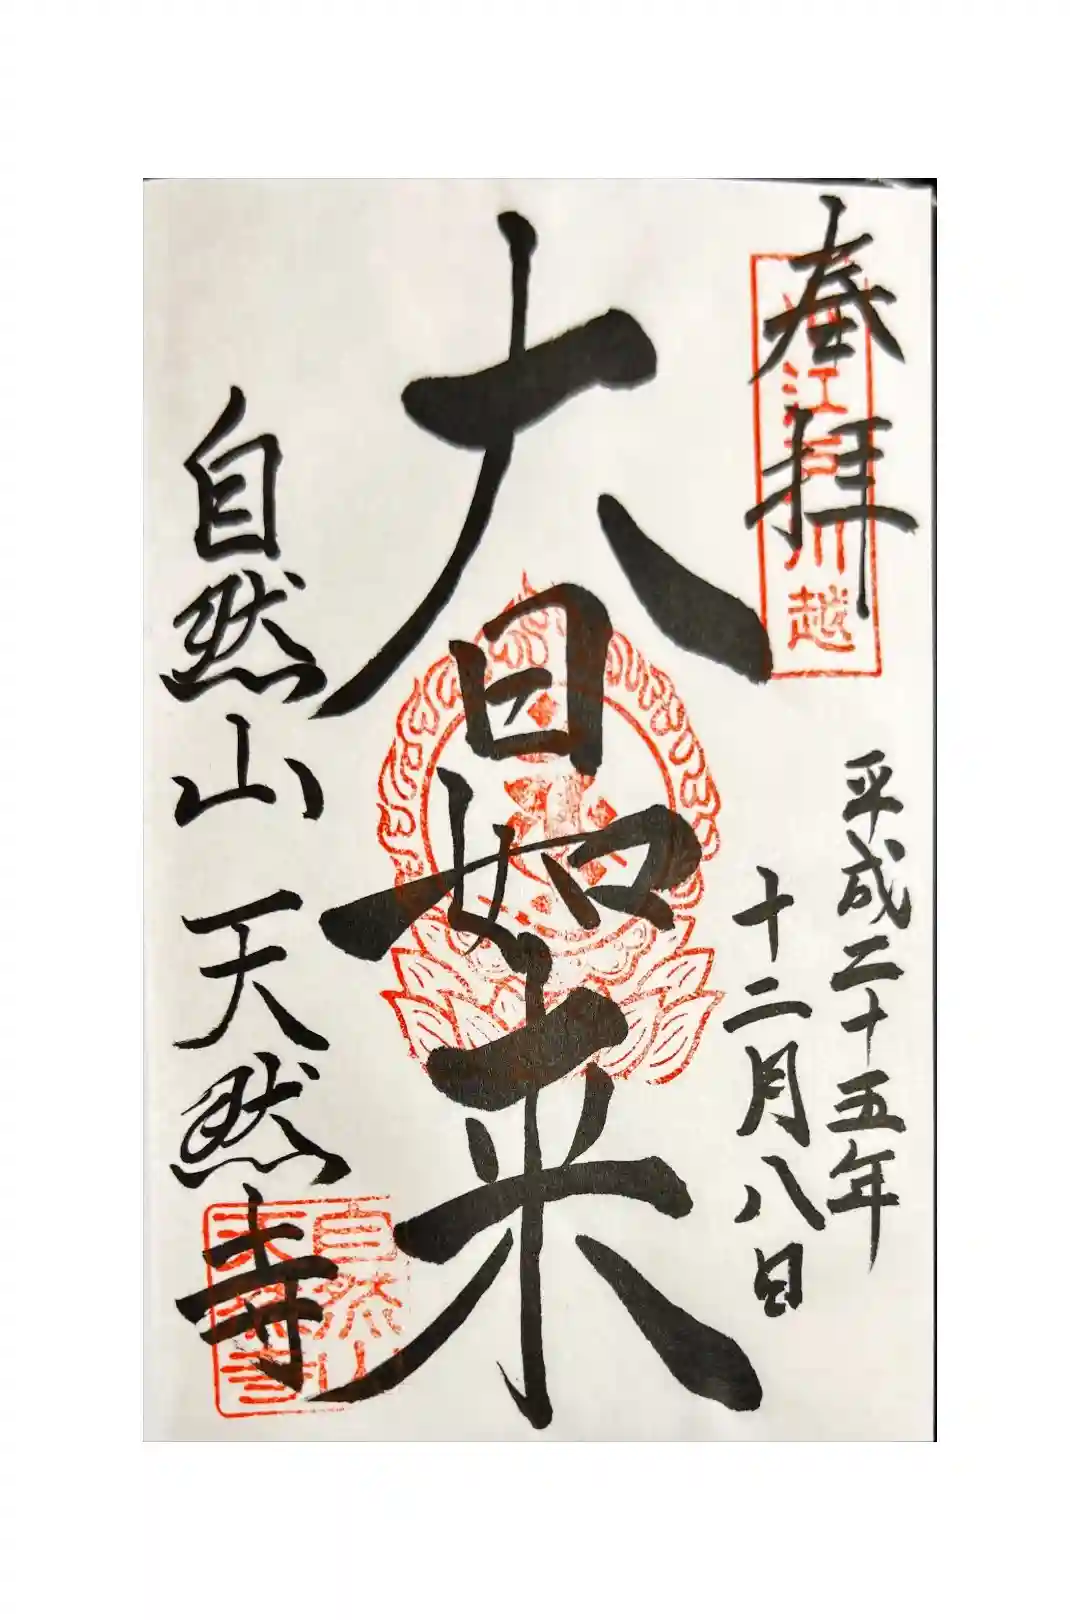 奉拝
平成二十五年
十二月八日
大日如来
自然山天然寺
江戸川越
自然山
天然寺